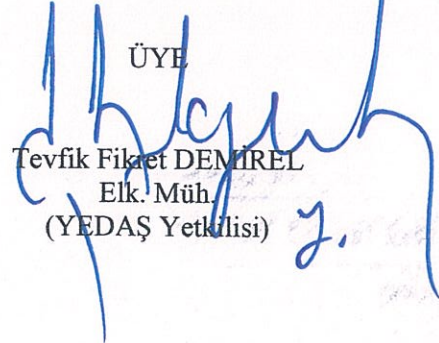 ÜYE
Tevfik Fikret DEMİREL
Elk. Müh.
(YEDAŞ Yetkilisi)